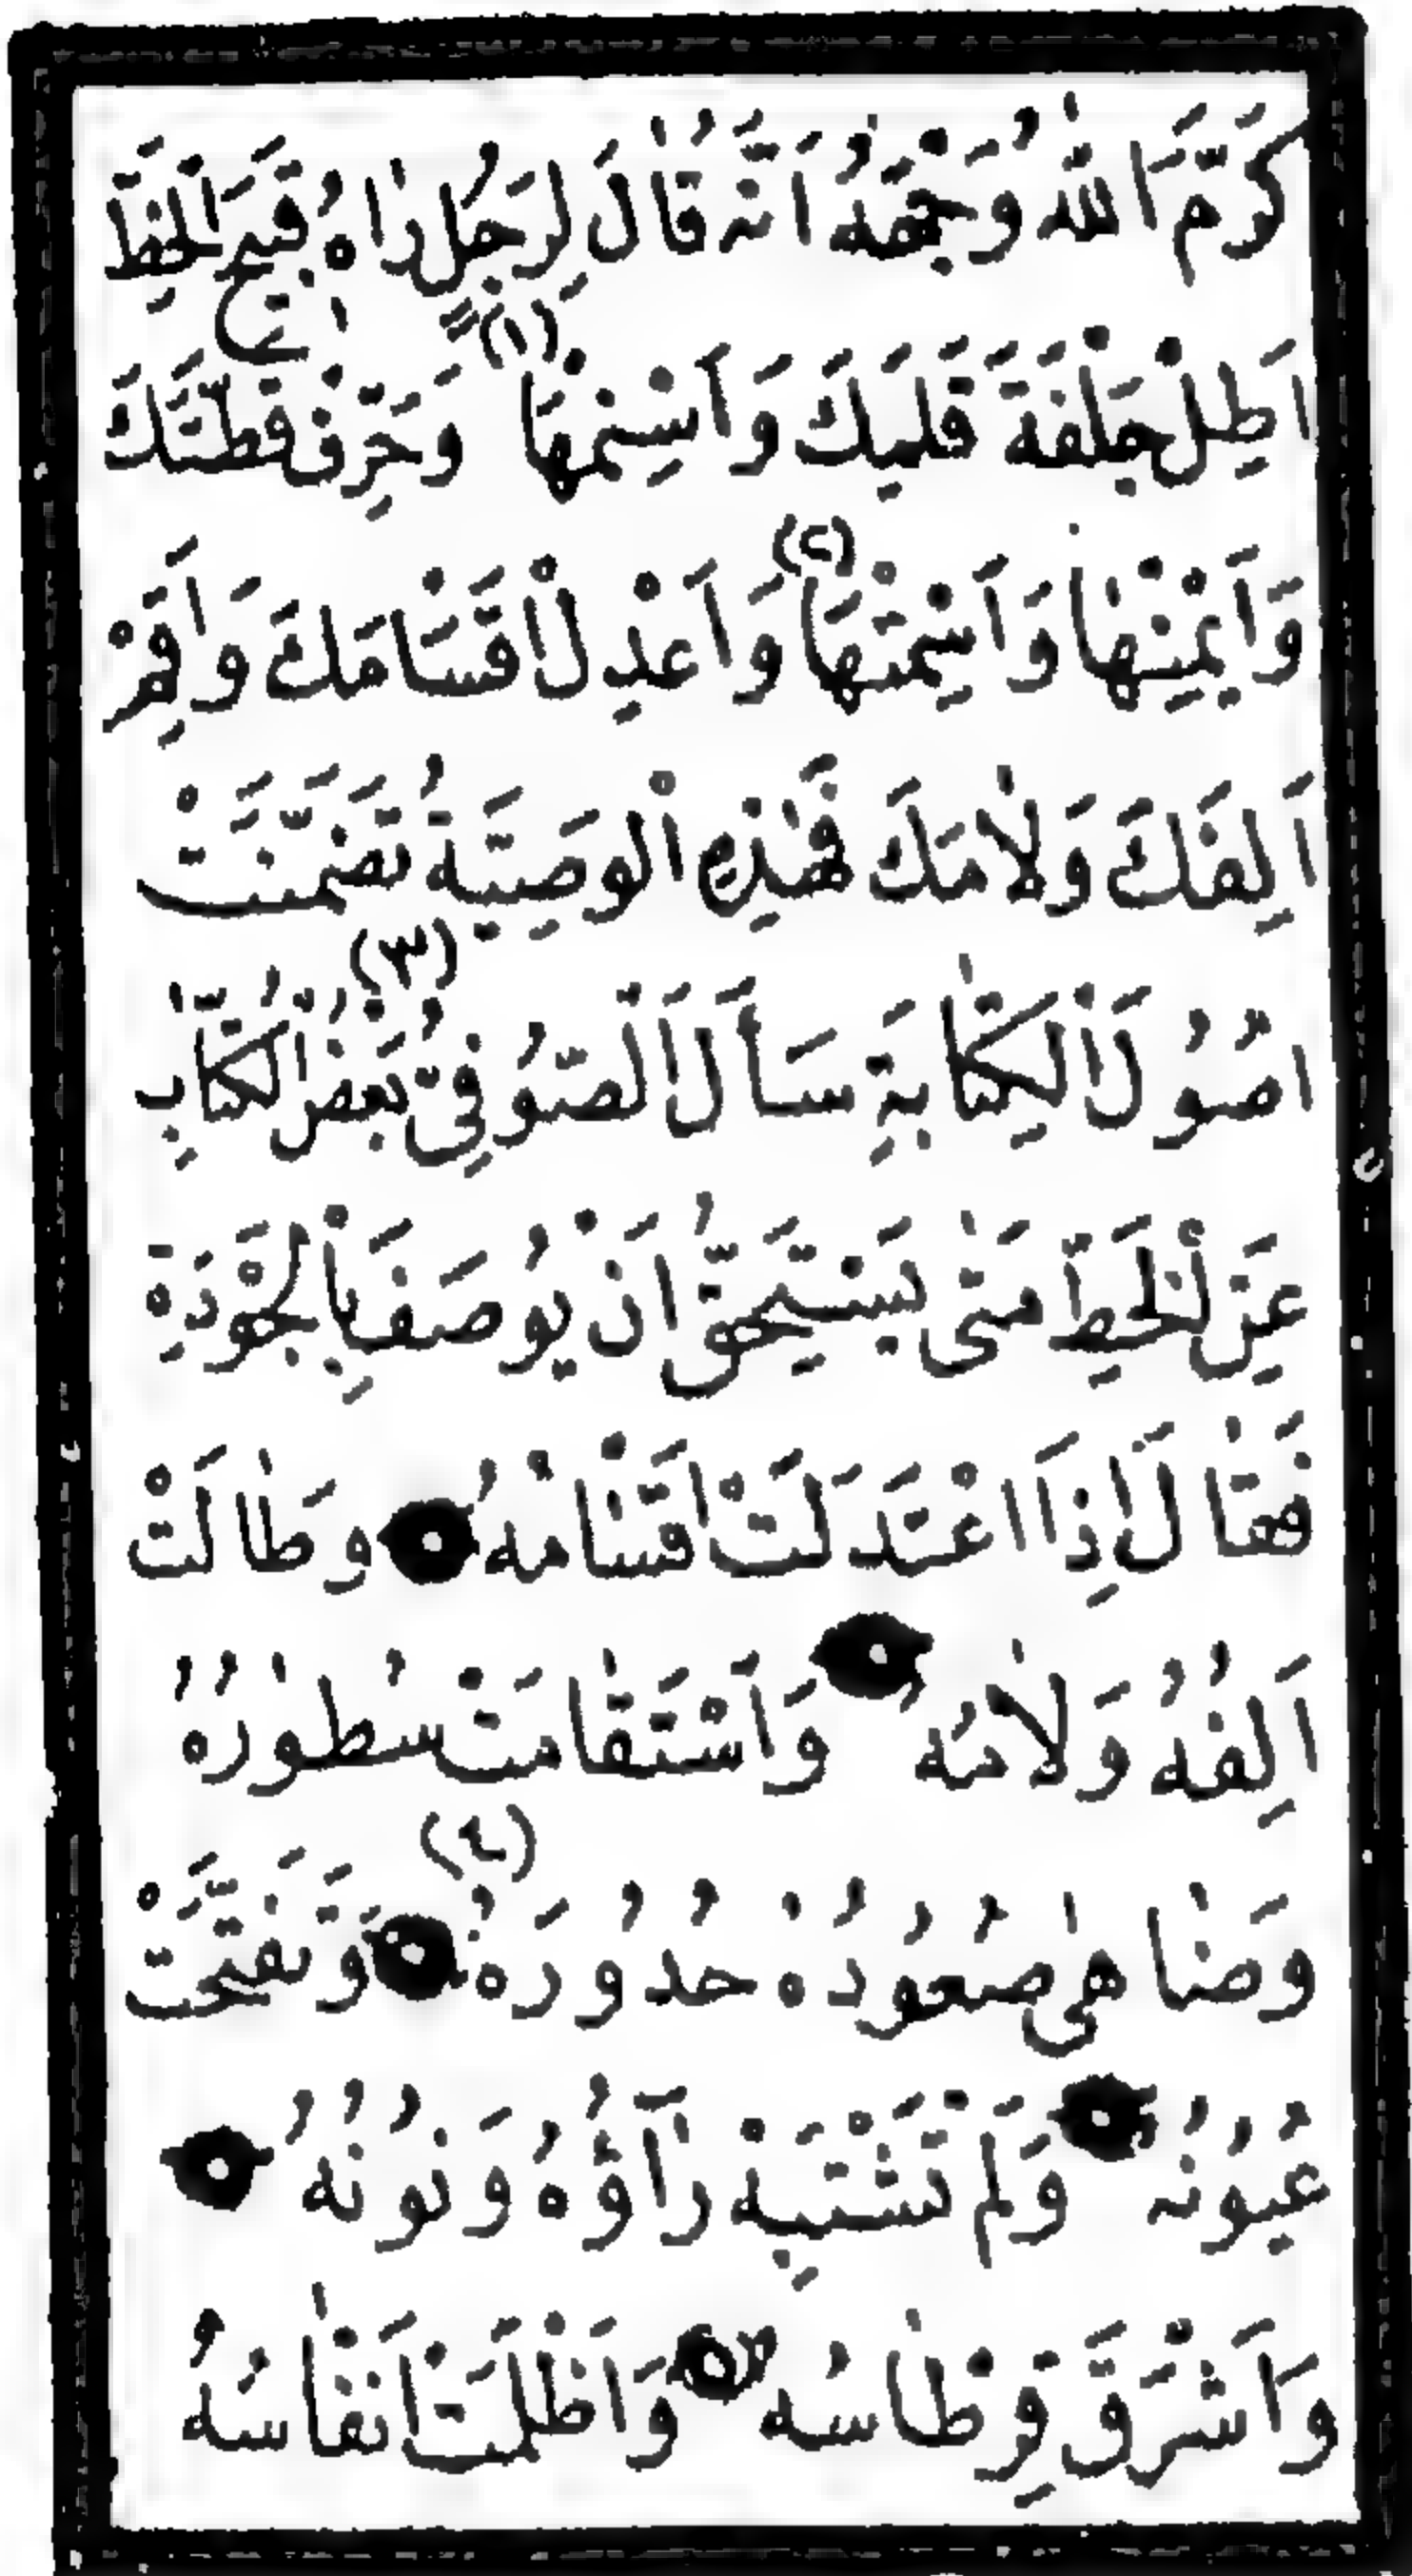 كَرَّمَ اللّٰهُ وَجْهَهُ اَنَّهُ قَالَ لِرَجُلٍ رَاٰهُ قَبِيحَ الْخَطِّ
اَطِلْ جِلْفَةَ قَلَمِكَ وَاَسْمِنْهَا (١) وَحَرِّفْ قَطَّتَكَ
وَاَيْمِنْهَا وَاَسْمِتْهَا (٢) وَاَعْدِلْ اَقْسَامَكَ وَاَقِمْ
اَلِفَكَ وَلَامَكَ فَهٰذِهِ الْوَصِيَّةُ تَضَمَّنَتْ
اُصُولَ الْكِتَابَةِ سَأَلَ الصُّوفِيُّ (٣) بَعْضَ الْكُتَّابِ
عَنِ الْخَطِّ مَتٰى يَسْتَحِقُّ اَنْ يُوصَفَ بِالْجَوْدَةِ
فَقَالَ اِذَا اعْتَدَلَتْ اَقْسَامُهُ وَطَالَتْ
اَلِفُهُ وَلَامُهُ وَاَسْتَقَامَتْ سُطُورُهُ
وَضَاهٰى صُعُودُهُ حُدُورَهُ (٤) وَتَفَتَّحَتْ
عُيُونُهُ وَلَمْ تَشْتَبِهْ رَآؤُهُ وَنُونُهُ
وَاَشْرَقَ قِرْطَاسُهُ وَاَظْلَمَتْ اَنْقَاسُهُ